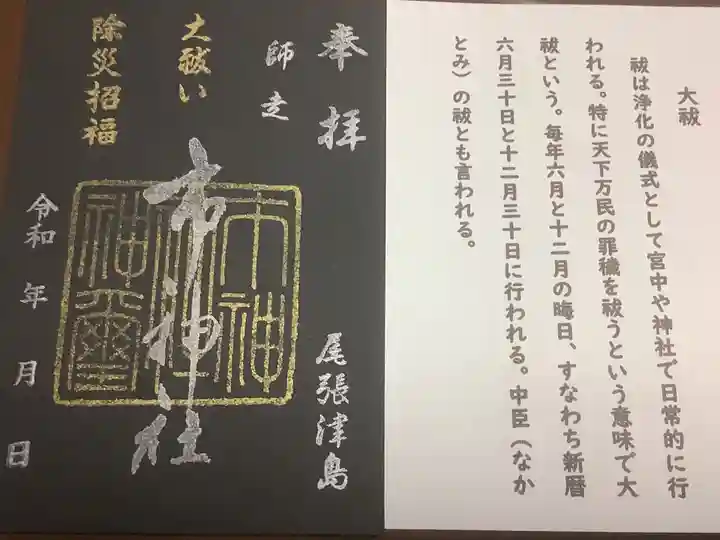 奉拝
師走
大祓い
除災招福
市神社
市神
神璽
尾張津島
令和 年 月 日
大祓
祓は浄化の儀式として宮中や神社で日常的に行
われる。特に天下万民の罪穢を祓うという意味で大
祓という。毎年六月と十二月の晦日、すなわち新暦
六月三十日と十二月三十日に行われる。中臣(なか
とみ)の祓とも言われる。